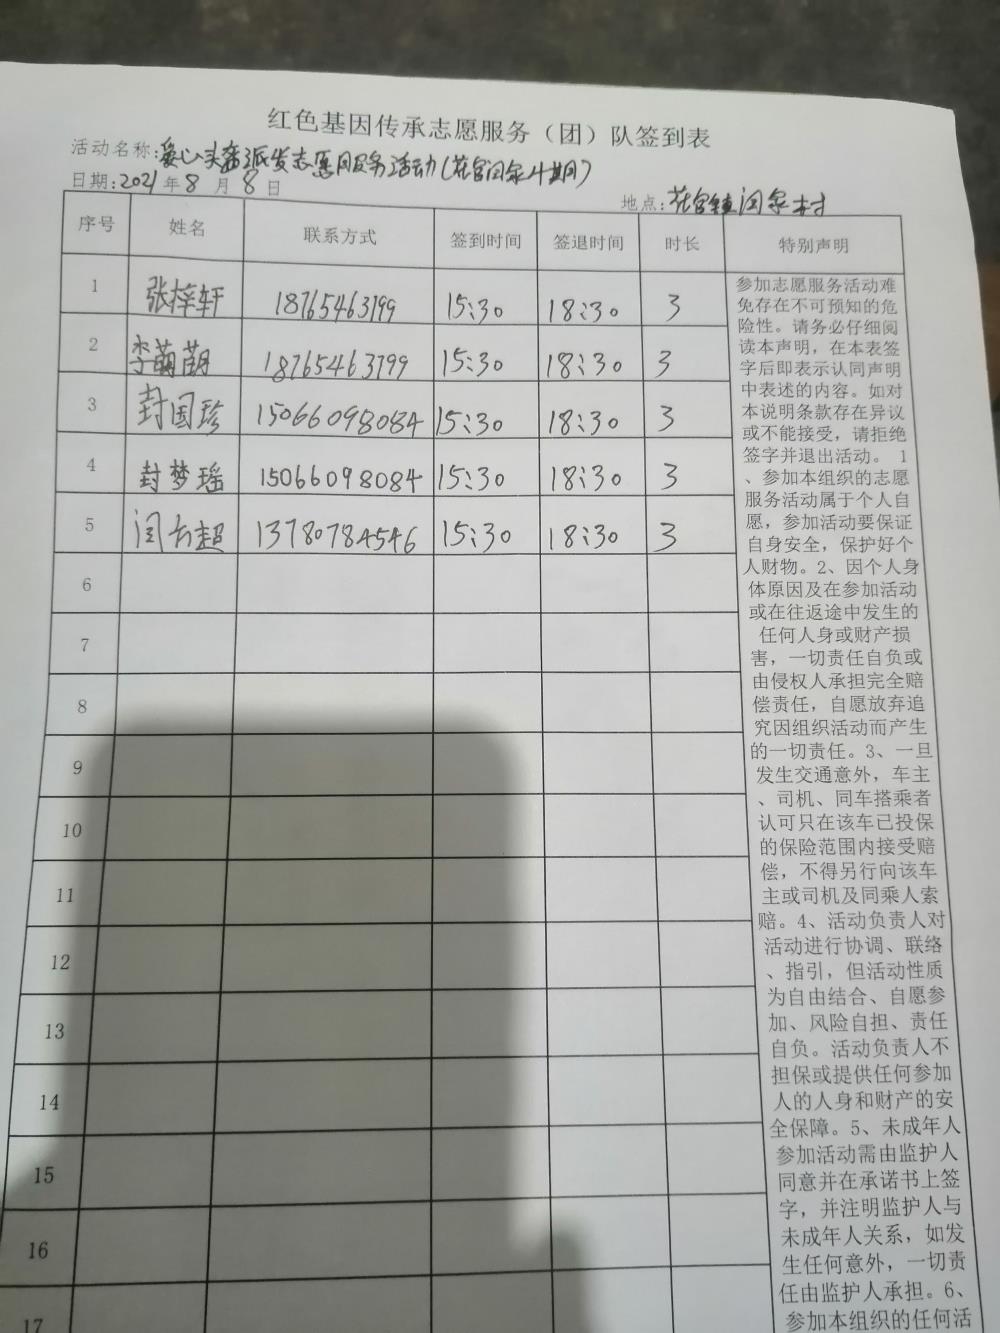 红色基因传承志愿服务（团）队签到表
活动名称:爱心头盔派发志愿服务活动(花官闫家4期)
日期:2021年8月8日
地点:花官镇闫家村
序号 姓名 联系方式 签到时间 签退时间 时长 特别声明
1 张梓轩 18765463799 15:30 18:30 3
2 李萌萌 18765463799 15:30 18:30 3
3 封国珍 15066098084 15:30 18:30 3
4 封梦瑶 15066098084 15:30 18:30 3
5 闫超 13780784546 15:30 18:30 3
6
7
8
9
10
11
12
13
14
15
16
17
参加志愿服务活动难
免存在不可预知的危
险性。请务必仔细阅
读本声明，在本表签
字后即表示认同声明
中表述的内容。如对
本说明条款存在异议
或不能接受，请拒绝
签字并退出活动。 1
、参加本组织的志愿
服务活动属于个人自
愿，参加活动要保证
自身安全，保护好个
人财物。2、因个人身
体原因及在参加活动
或在往返途中发生的
任何人身或财产损
害，一切责任自负或
由侵权人承担完全赔
偿责任，自愿放弃追
究因组织活动而产生
的一切责任。3、一旦
发生交通意外，车主
、司机、同车搭乘者
认可只在该车已投保
的保险范围内接受赔
偿，不得另行向该车
主或司机及同乘人索
赔。4、活动负责人对
活动进行协调、联络
、指引，但活动性质
为自由结合、自愿参
加、风险自担、责任
自负。活动负责人不
担保或提供任何参加
人的人身和财产的安
全保障。5、未成年人
参加活动需由监护人
同意并在承诺书上签
字，并注明监护人与
未成年人关系，如发
生任何意外，一切责
任由监护人承担。6、
参加本组织的任何活